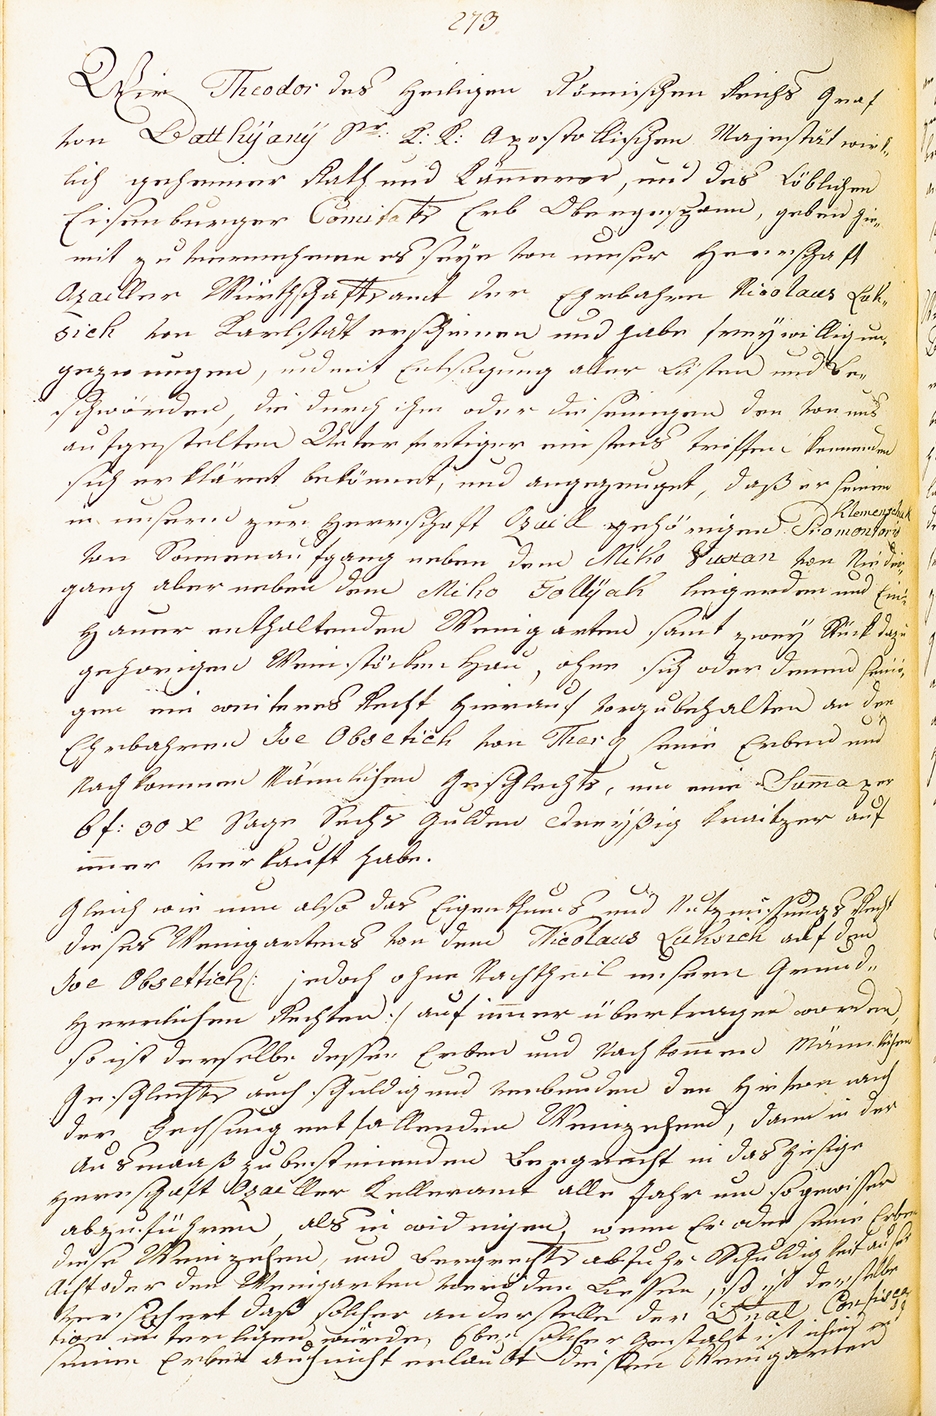 273.
Wir Theodor des Heiligen Römischen Reichs Graf
von Batthÿanÿ Sr: K: K: Apostollischen Majestät würk„
lich geheimer Rath und Kämmerer, und des Löblichen
Eisenburger Comitats Erb Obergespann, geben hie„
mit zu vernehmen es seye von unser Herrschaft
Ozailler Würthschaftsamt der Ehrbahre Nicolaus Luk„
sich von Karlstadt erschienen und habe freywillig un„
gezwungen, und mit Entsagung aller Lästen und Be„
schwörden, die durch ihm oder die seinigen den von uns
aufgestelten Unterfertiger einstens treffen kennenden
sich erkläret bekönnet, und angezeuget, daß er seinen
in unsern zur Herrschaft Ozaill gehörigen Klemenschak
Promontorio
von Sonnenaufgang neben dem Miho Vuxan von Nieder„
gang aber neben dem Miho Follÿak liegenden und Ein„
Hauer enthaltenden Weingarten samt zwey Stück dazu
gehörigen Weinstöcken Hau, ohne sich oder denen seini„
gen ein weiteres Recht hierauf vorzubehalten an den
Ehrbahren Ive Obsetich von Therg seine Erben und
Nachkommen Männlichen Geschlechts, um eine Summa per
6 f: 30 x Sage Sechs Gulden Dreyßig Kraitzer auf
immer verkauft habe.
Gleich wie nun also das Eigenthums und Nutznüssungs Recht
dieses Weingartens von dem Nicolaus Luksich auf den
Ive Obsettich /: jedoch ohne Nachtheil unsern Grund„
Herrlichen Rechten :/ auf immer übertragen worden,
so ist derselbe dessen Erben und Nachkommen Männlichen
Geschlechts auch schuldig und verbunden den hievon nach
der Fechsung entfallenden Weinzehend, dann in der
Ausmaaß zu bestimenden Bergrecht in das hiesige
Herrschaft Ozailler Kelleramt alle Jahr um so gewisser
abzuführen, als in widrigen, wenn Er oder seine Erben
diese Weinzehen, und Bergrechts abfuhrs Schuldigkeit außer
Acht oder den Weingarten veröden liessen, so ist derselbe
versichert daß solcher anderstelle der Dual Confisca„
tion unterliegen würde, Eben solcher Gestalt ist ihm und
seinen Erben auch nicht erlaubt diesen Weingarten